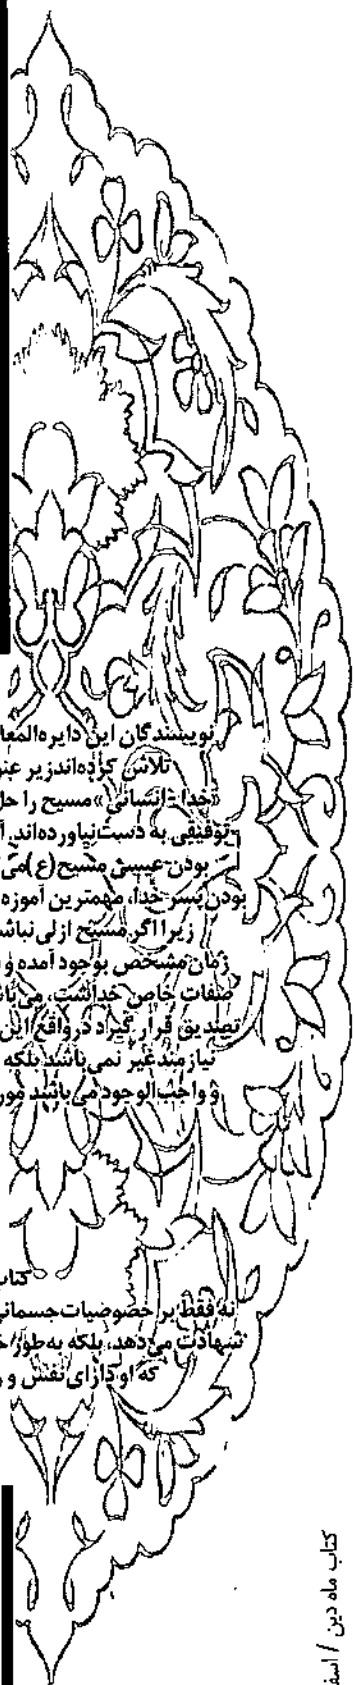 نویسندگان این دایره‌المعا
تلاش کرده‌اند زیر عنو
«خدا - انسانی» مسیح را حل
توفیقی به دست نیاورده‌اند. آ
بودن عیسی مسیح (ع) می
بودن پسر خدا، مهمترین آموزه
زیرا اگر مسیح ازلی نباش
زمان مشخص بوجود آمده و
صفات خاص خداست، می‌با
تصدیق قرار گیرد در واقع این
نیازمند غیر نمی‌باشد بلکه
و واجب‌الوجود می‌باشد مور
کتاب
نه فقط بر خصوصیات جسمانی
شهادت می‌دهد، بلکه به‌طور خ
که او دارای نفس و ر
کتاب ماه دین / اسف